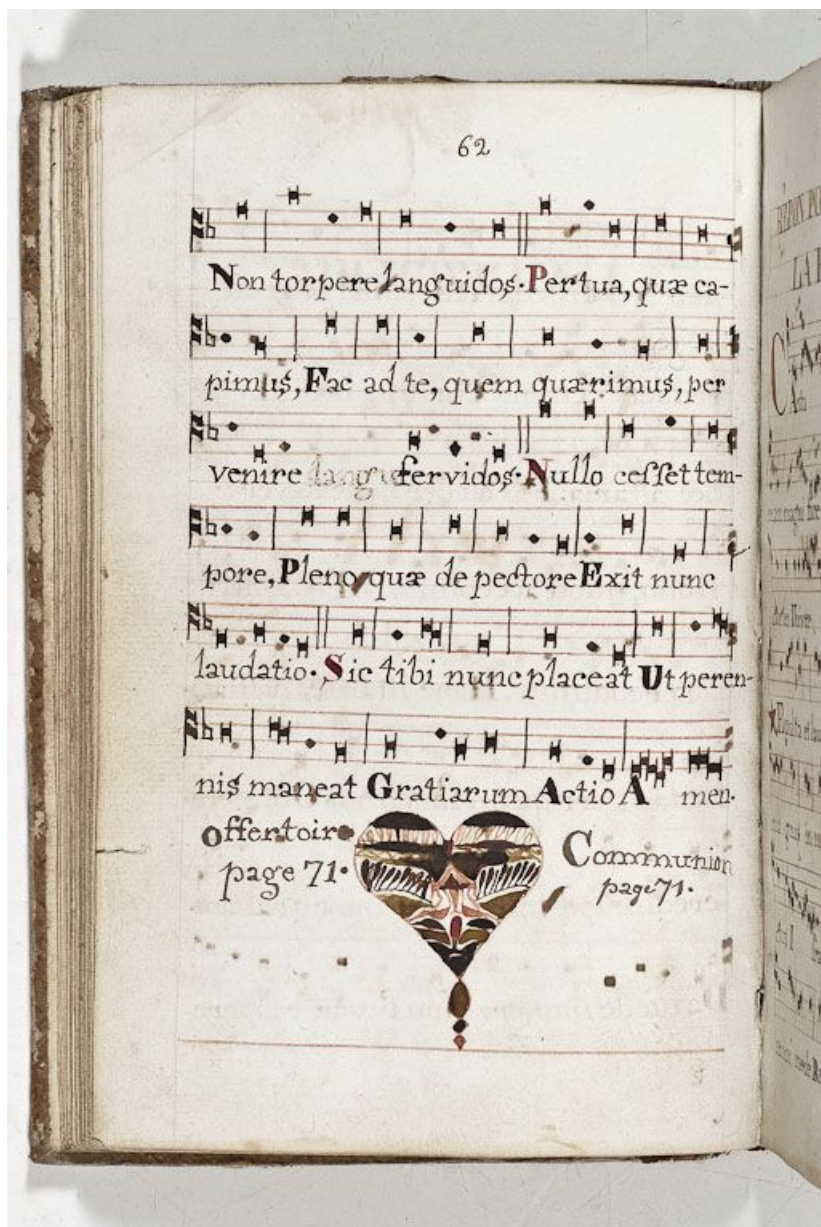 62
Non torpere languidos. Per tua, quæ ca-
pimus, Fac ad te, quem quærimus, per
venire fervidos. Nullo cesset tem-
pore, Pleno quæ de pectore Exit nunc
laudatio. Sic tibi nunc placeat Ut peren-
nis maneat Gratiarum Actio A men.
offertoire
page 71.
Communion
page 71.
LA